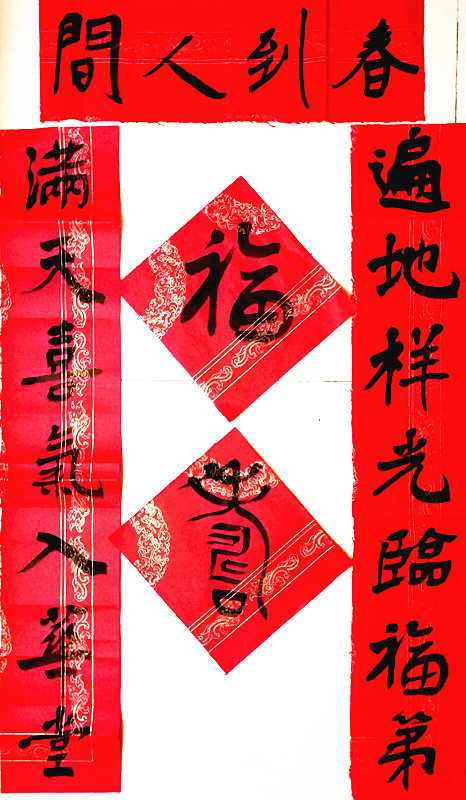 春到人間
遍地样光臨福第
滿天喜氣入華堂
福
壽